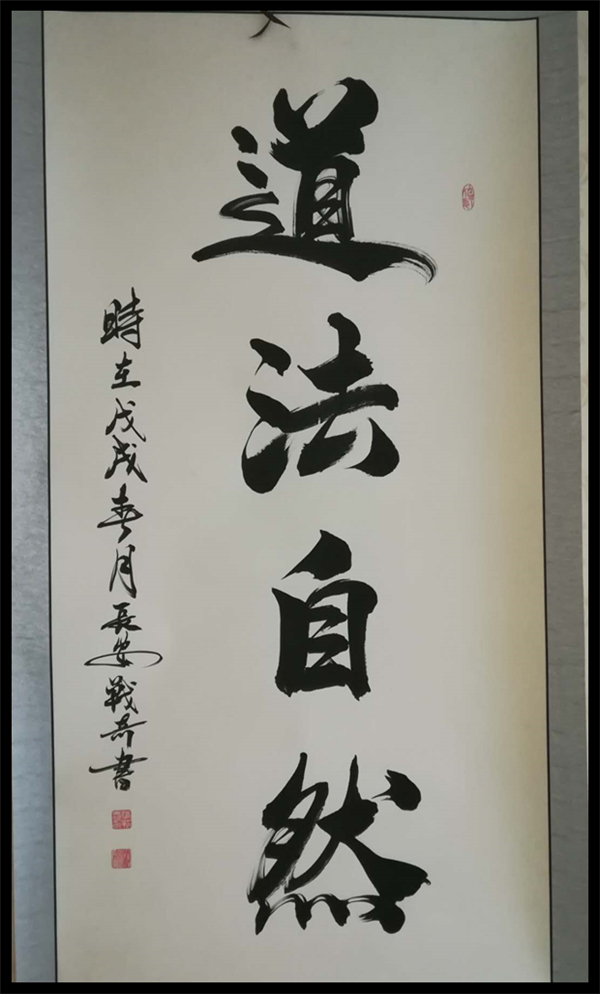 道法自然
時在戊戌春月長安戰奇書